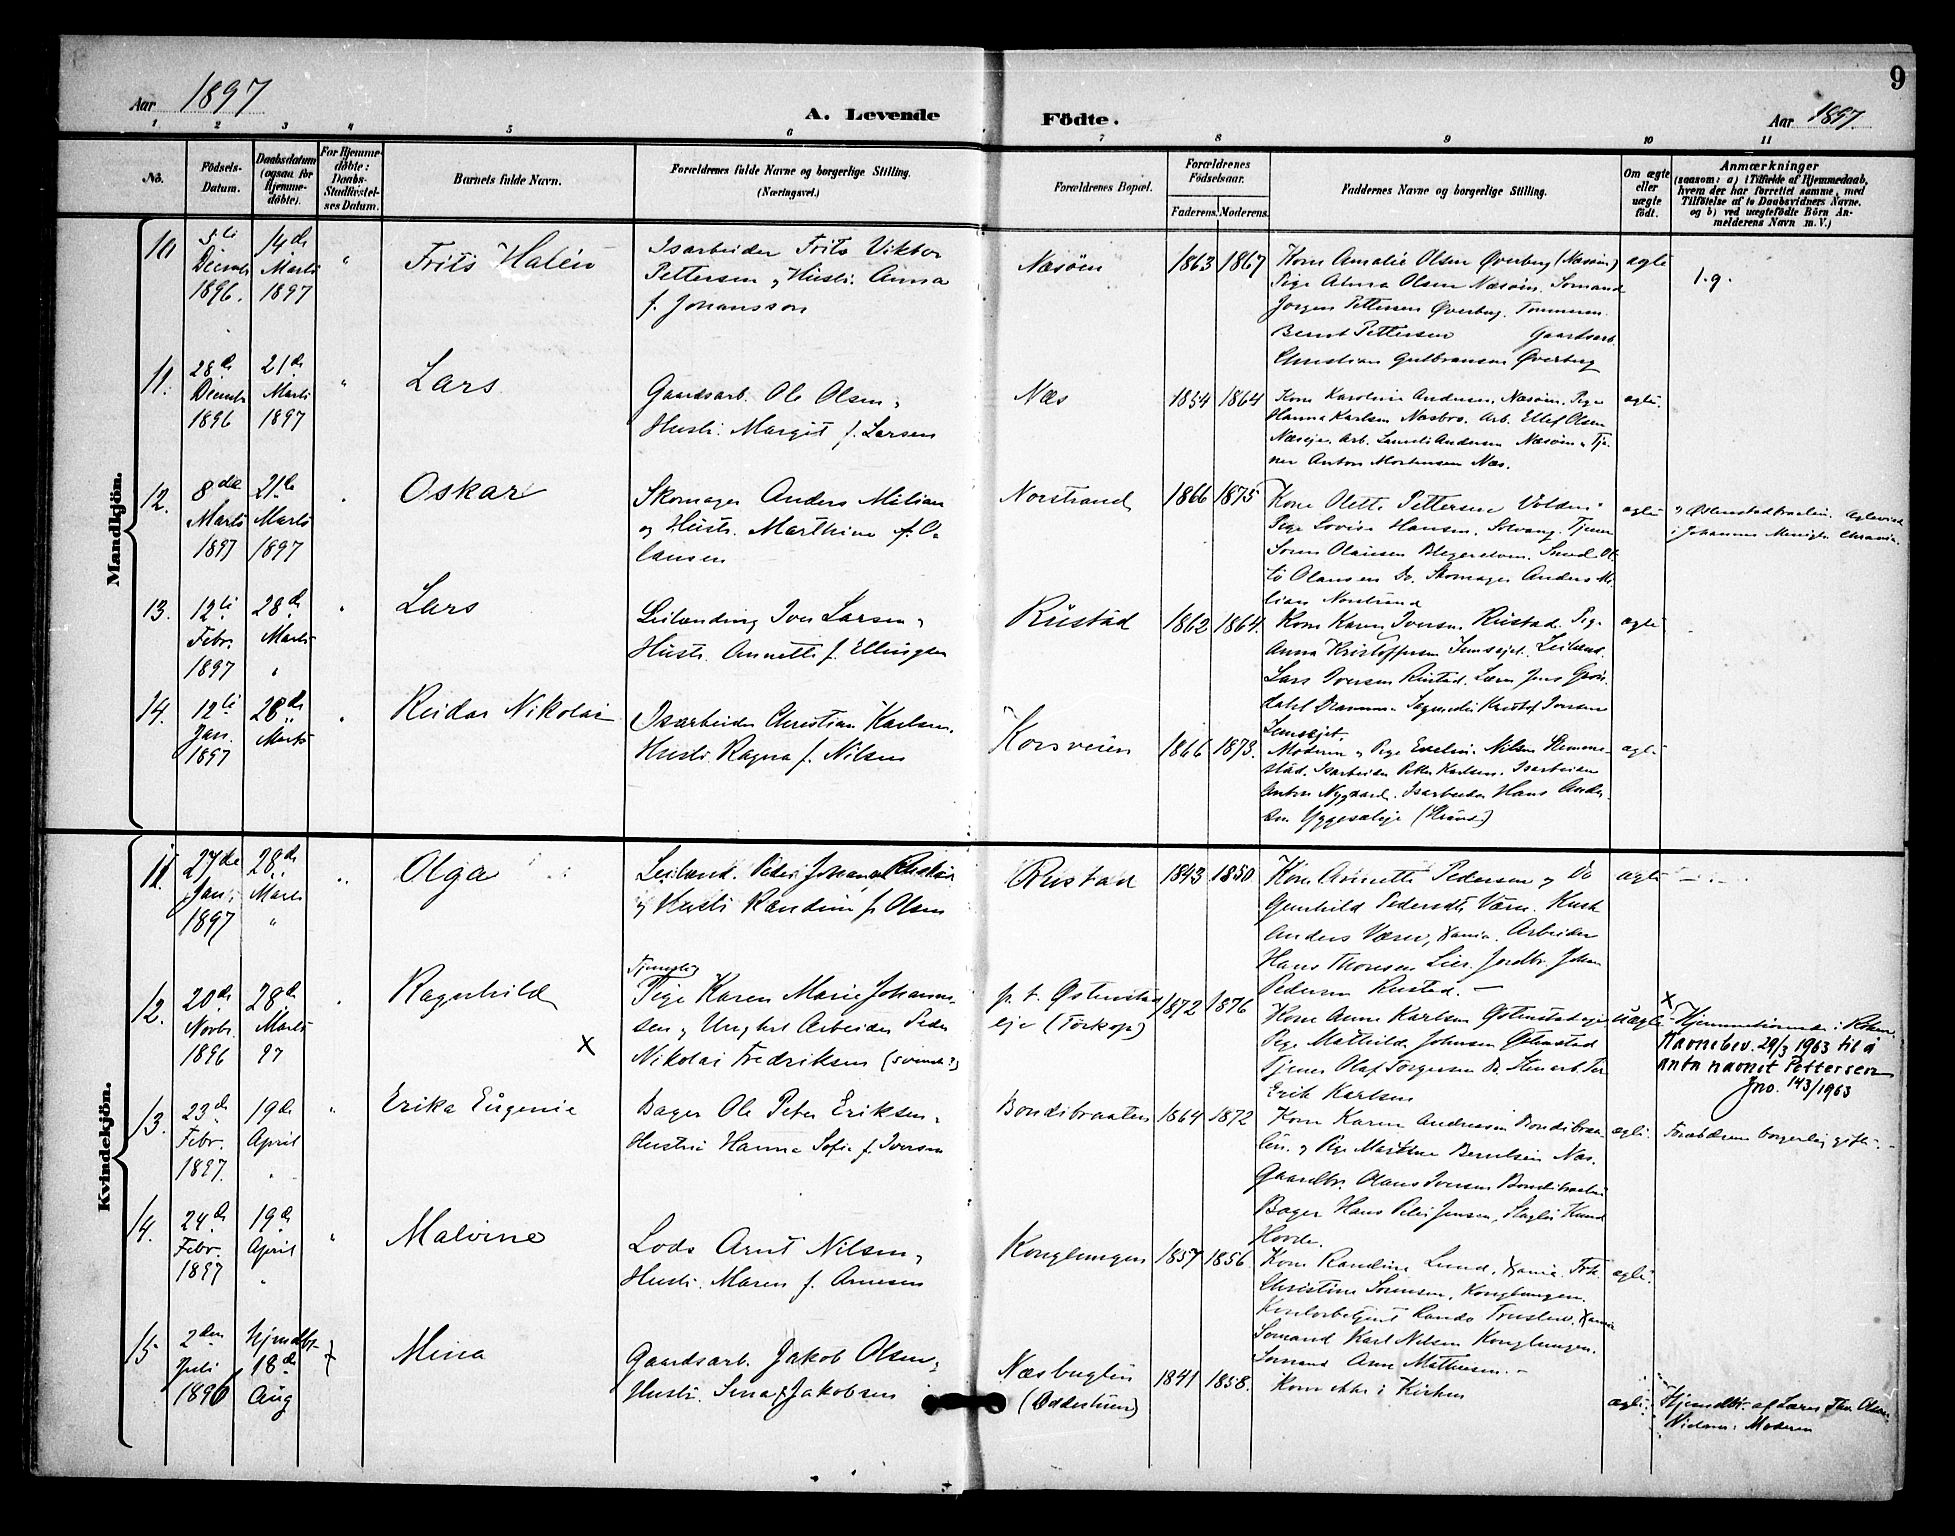 9
Aar 1897
A. Levende Födte.
Aar 1897
1 2 3 4 5 6 7 8 9 10 11
No.
Födsels-
Datum.
Daabsdatum
(ogsaa for
Hjemme-
döbte).
For Hjemme-
döbte:
Daabs-
Stadfæstel-
ses Datum.
Barnets fulde Navn.
Forældrenes fulde Navne og borgerlige Stilling.
(Næringsvei.)
Forældrenes Bopæl.
Forældrenes
Födselsaar.
Faderens. Moderens.
Faddernes Navne og borgerlige Stilling.
Om ægte
eller
uægte
födt.
Anmærkninger
(saasom: a) i Tilfælde af Hjemmedaab,
hvem der har forrettet samme, med
Tilföielse af to Daabsvidners Navne.
og b) ved uægtefödte Börn An-
melderens Navn m. V.)
Mandkjön.
10
5te
Decmbr
1896.
14de
Marts
1897
"
Frits
Isarbeider Frits Viktor
Pettersen og Hustr. Anna
f. Johansson
Næsöen
1863 1867
Kone Amalie Olsen Øverberg (Næsöen)
Pige Alma Olsen Næsöen. Sömand
Jörgen Pettersen Øverberg. Tömmerm.
Bernt Pettersen Gaardsarb.
Christian Gulbransen Øverberg
ægte
11.
28de
Decmbr
1896
21de
Marts
1897
"
Lars
Gaardsarb. Ole Olsen og
Hustr. Margit f. Larsen
Næs
1854 1864
Kone Karoline Andersen, Næsöen. Pige
Hanna Karlsen Næsbro. Arb. Ellef Olsen
Næseje. Arb. Andersen Næsöen. Tje-
ner Anton Mortensen Næs.
ægte.
12.
8de
Marts
1897
21de
Marts
1897
Oskar
Skomager Anders Milian
og Hustr. Marthine f. O-
lausen
Norstrand
1866 1875
Kone Olette Pettersen Volden
Pige Lovise Hansen, Solvang, Tjener
Sören Olausen
Olausen Do. Skomager Anders Mi-
lian Norstrand
ægte
13.
12te
Febr.
1897
28de
Marts
"
Lars
Leilænding Iver Larsen og
Hustr. Annette f. Ellingsen
Rustad
1862 1864.
Kone Karen Iversen, Rustad. Pige
Anna Kristoffersen Leilænd.
Lars Iversen Rustad. Jens
ægte
14.
12te
Jan.
1897
28de
Marts
Reidar Nikolai
Isarbeider Christian Karlsen.
Hustr. Ragna f. Nilsen
Korsveien
1866 1873.
Moderen og Pige Nilsen Slemme-
stad. Isarbeider Peter Karlsen. Isarbeider
Anton Nygaard. Isarbeider Hans Ander-
sen
ægte
Kvindekjön.
11.
27de
Jan.
1897
28de
Marts
"
Olga
Leilænd. Peder Johansen Rustad
og Hustr. Randine f. Olsen
Rustad
1843 1850
Kone Annette Pedersen og Do
Gunhild Pedersdt. Værn. Kusk
Anders Xania. Arbeider
Hans Thomsen Lier. Jordbr. Johan
Pedersen Rustad. —
ægte
12.
20de
Novbr.
1896
28de
Marts
97
Ragnhild
Tjenestep
Pige Karen Marie Johanne-
sen og Ungkarl Arbeider Peder
x Nikolai Fredriksen (svensk?)
p. t. Østenstad
eje (Torkop)
1872 1876
Kone Anne Karlsen Østenstadeje
Pige Mathilde Johnsen Østenstad
Tjener Olaf Torgersen Do. Stenarb.
Erik Karlsen
uægte
x
Navnebev. 29/3 1963 til å
anta navnet Pettersen
Jno. 143/1963
13.
23de
Febr.
1897.
19de
April
"
Erika Eugenie
Bager Ole Peter Eriksen og
Hustru Hanna Sofie f. Iversen
Bondibraaten
1864 1872
Kone Karen Andresen Bondibraa-
ten. og Pige Berntsen Næs.
Gaardbr. Olaus Iversen Bondibraaten
Bager Hans Peter Jensen, Slagter Knud
Hovde.
ægte.
Forældrene borgerlig gifte. -
14.
24de
Febr.
1897
19de
April
"
Malvine
Lods Arnt Nilsen og
Hustr. Maren f. Arnesen
Konglungen
1857 1856.
Kone Randine Lund, Xania. Frk.
Christine Sörensen, Konglungen.
Kontorbetjent Xania
Sömand Karl Nilsen Konglungen.
Sömand Arne Mathiesen. —
ægte.
15
2den
Juli
1896
Hjemdbt
18de
Aug
Mina
Gaardsarb. Jakob Olsen og
Hustr. Sina f. Jakobsen
Næsbugten
1841 1858.
Kone i Kirken
ægte.
Hjemdbt. af Lærer Thv. Olsen
Vidner: Moderen